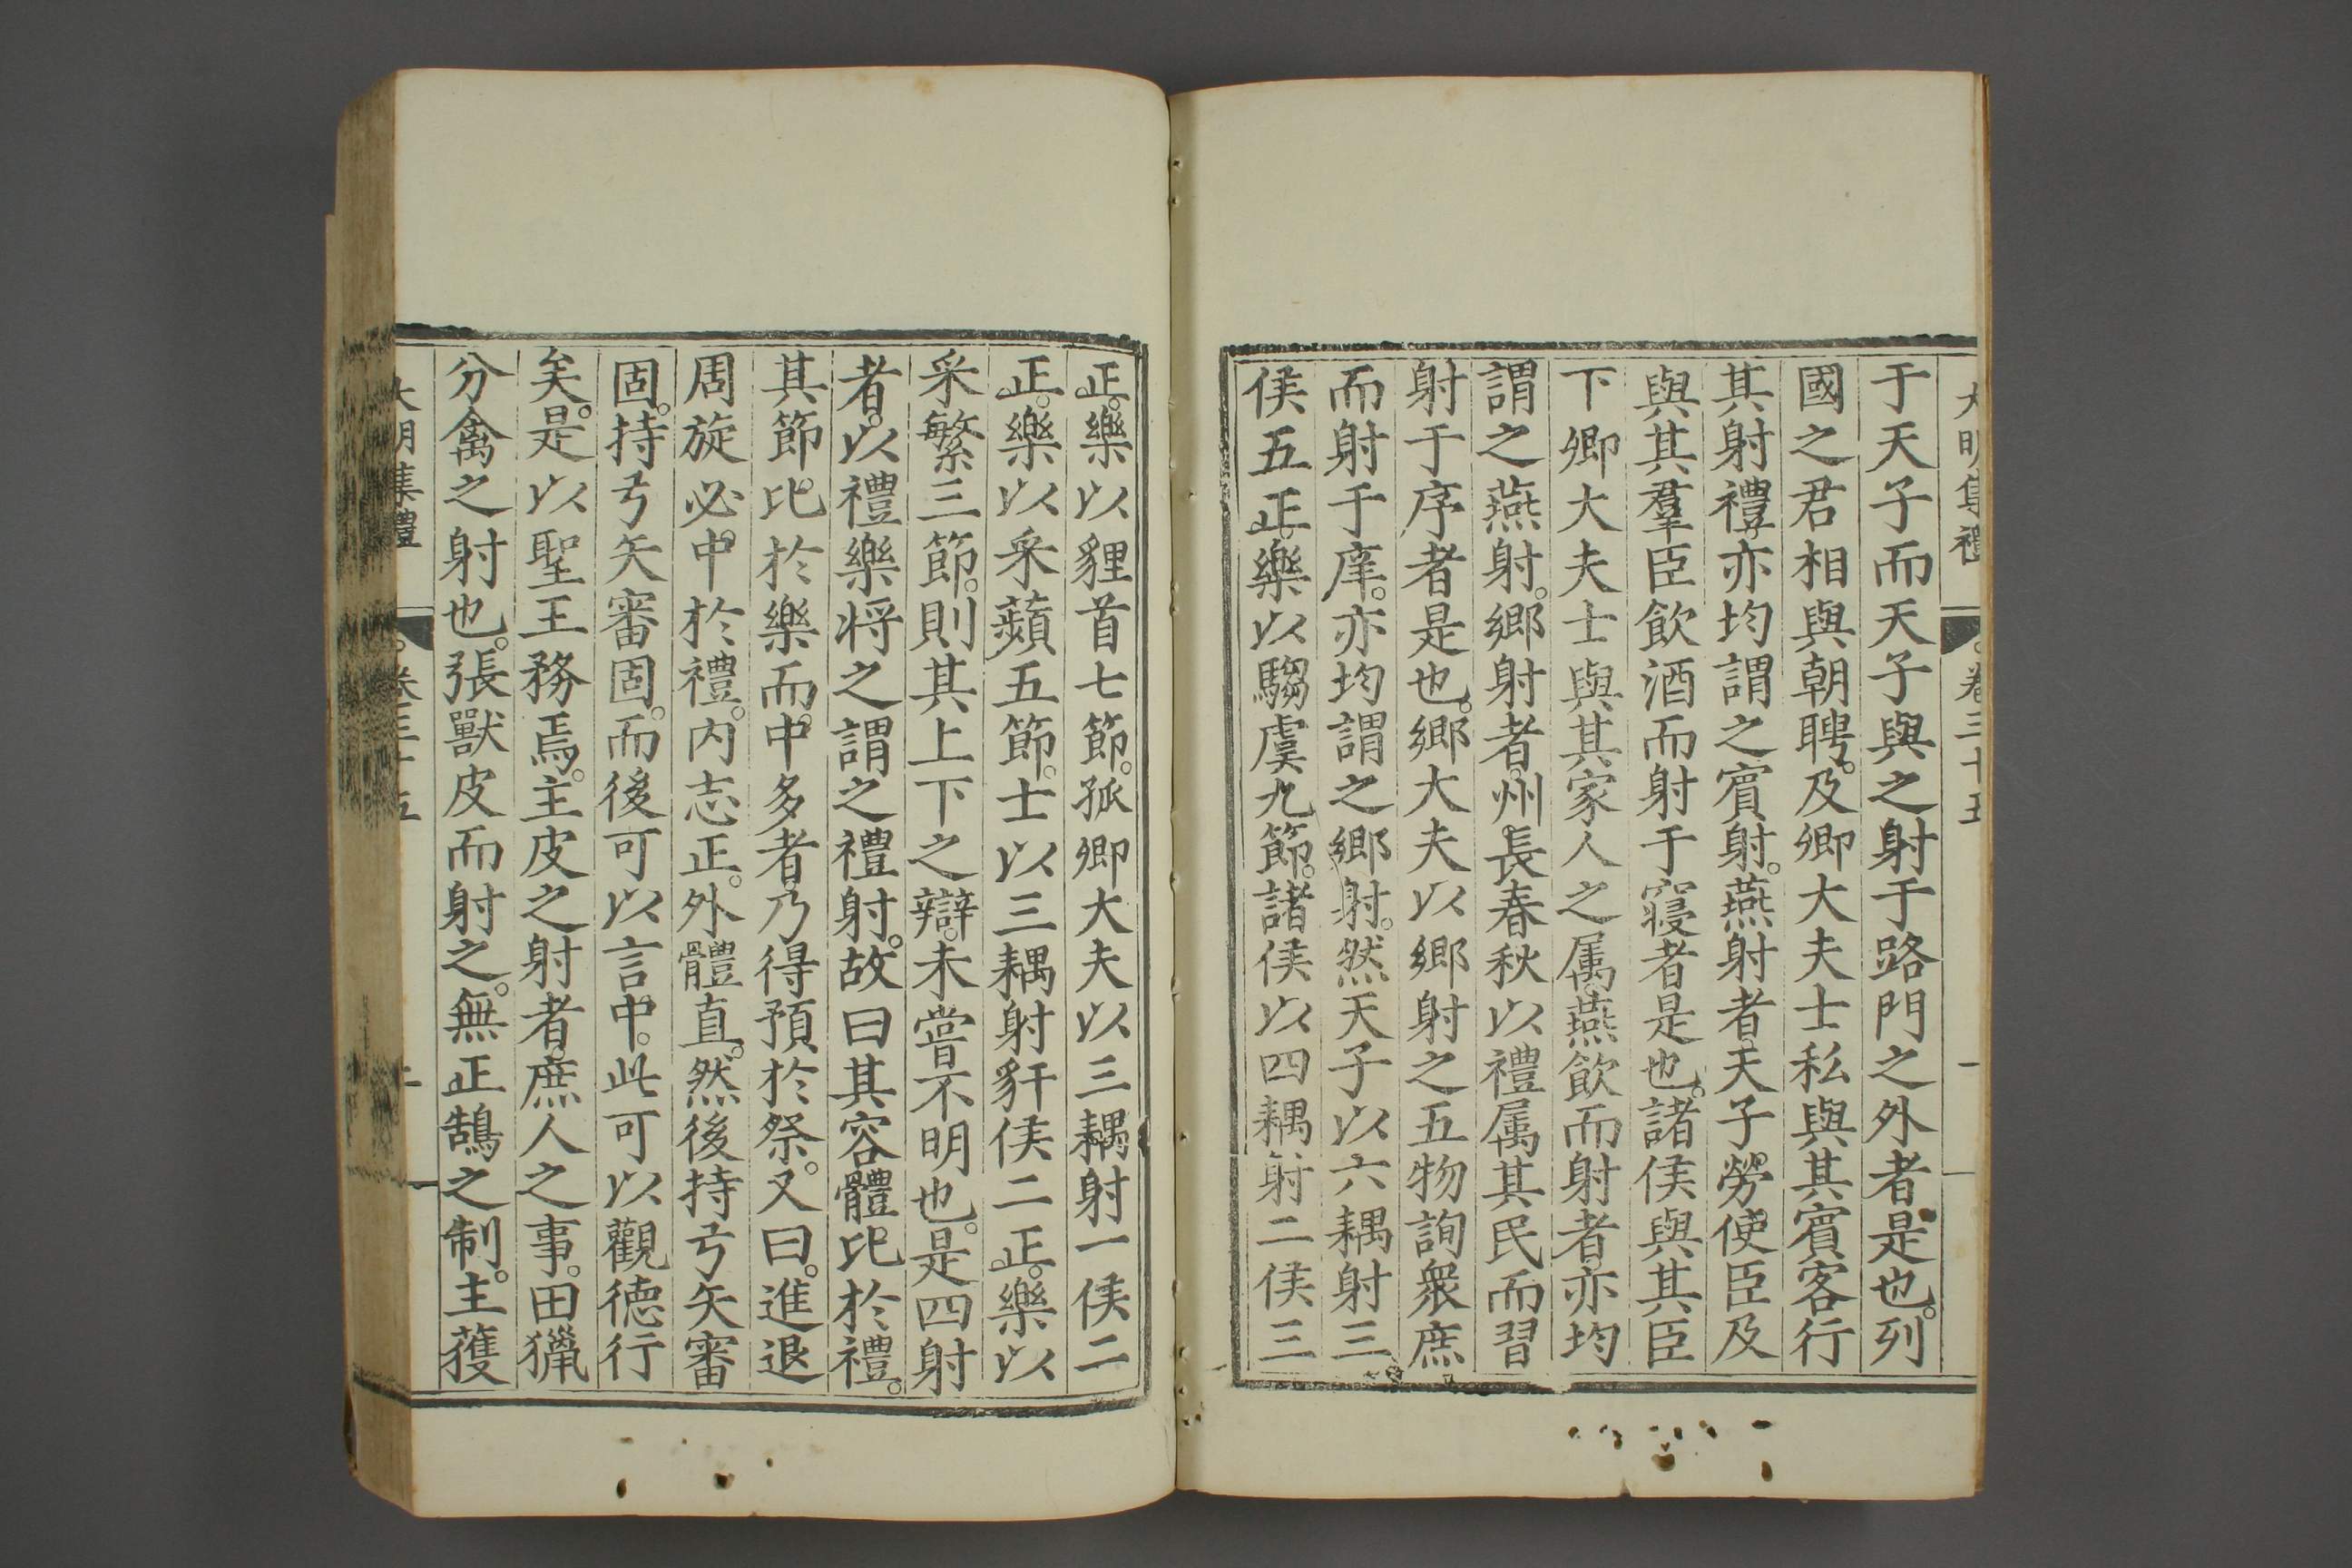 大明集禮 卷三十五 一
于天子而天子與之射于路門之外者是也。列
國之君相與朝聘。及卿大夫士私與其賓客行
其射禮。亦均謂之賓射。燕射者。天子勞使臣及
與其羣臣飲酒而射于寢者是也。諸侯與其臣
下卿大夫士與其家人之属。燕飲而射者。亦均
謂之燕射。鄉射者。州長春秋以禮属其民而習
射于序者是也。鄉大夫以鄉射之五物詢衆庶
而射于庠。亦均謂之鄉射。然天子以六耦射三。
侯五正。樂以騶虞九節。諸侯以四耦射二侯三
正。樂以貍首七節。孤卿大夫以三耦射一侯二
正。樂以采蘋五節。士以三耦射豻侯二正。樂以
采繁三節。則其上下之辯。未嘗不明也。是四射
者。以禮樂将之謂之禮射。故曰其容體比於禮。
其節比於樂而中多者。乃得預於祭。又曰。進退
周旋必中於禮。内志正。外體直。然後持弓矢審
固。持弓矢審固。而後可以言中。此可以觀德行
矣。是以聖王務焉。主皮之射者。庶人之事。田獵
分禽之射也。張獸皮而射之。無正鵠之制。主獲
大明集禮 卷三十五